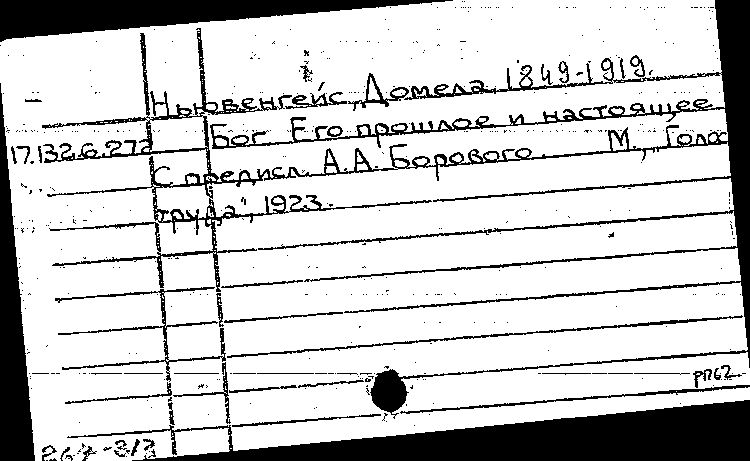 Ньювенгейс, Домела, 1849-1919.
17.132.6.272 Бог. Его прошлое и настоящее.
С предисл. А.А. Борового. М., „Голос
труда", 1923.
РП62
267-313